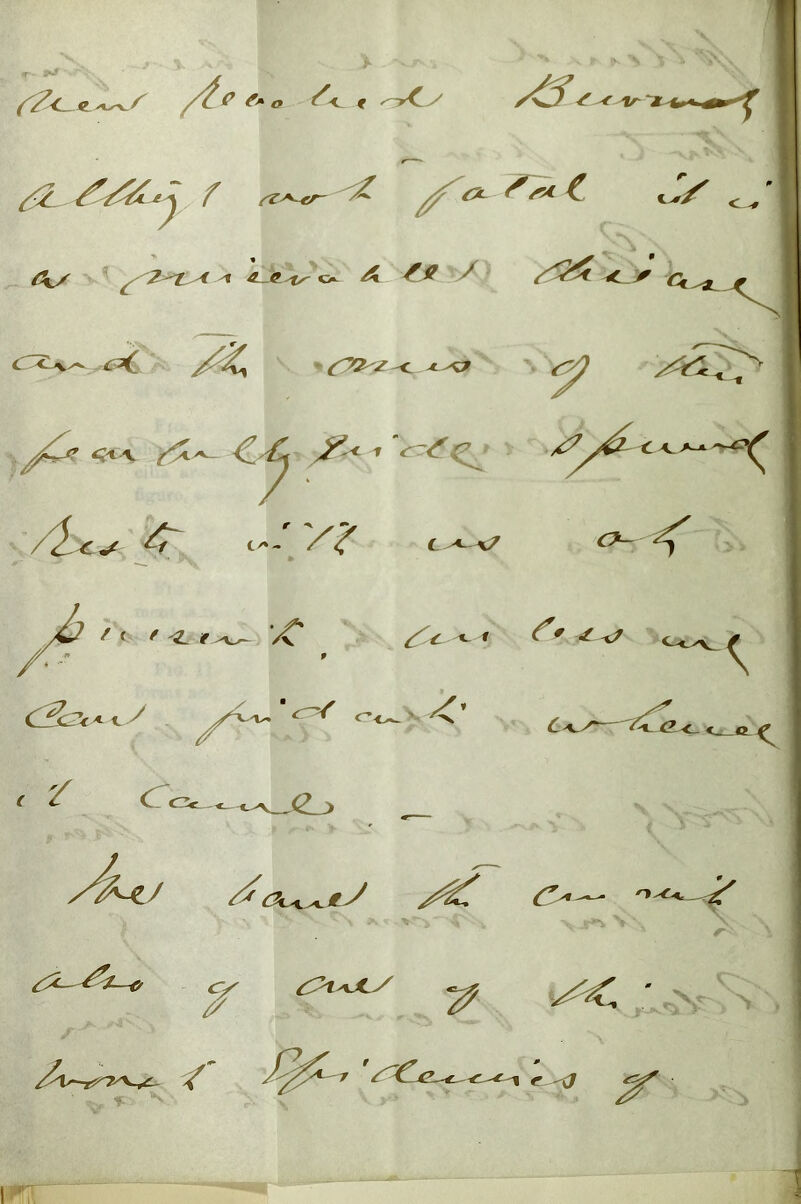 now reached Burmah
Althgh not fatal it is
a miserable disease
and the onus of this
fearfully wide spread
rests with us at
present, unless we
can find out whence
it came –
We have the
also of one of the
worst Epidemics of